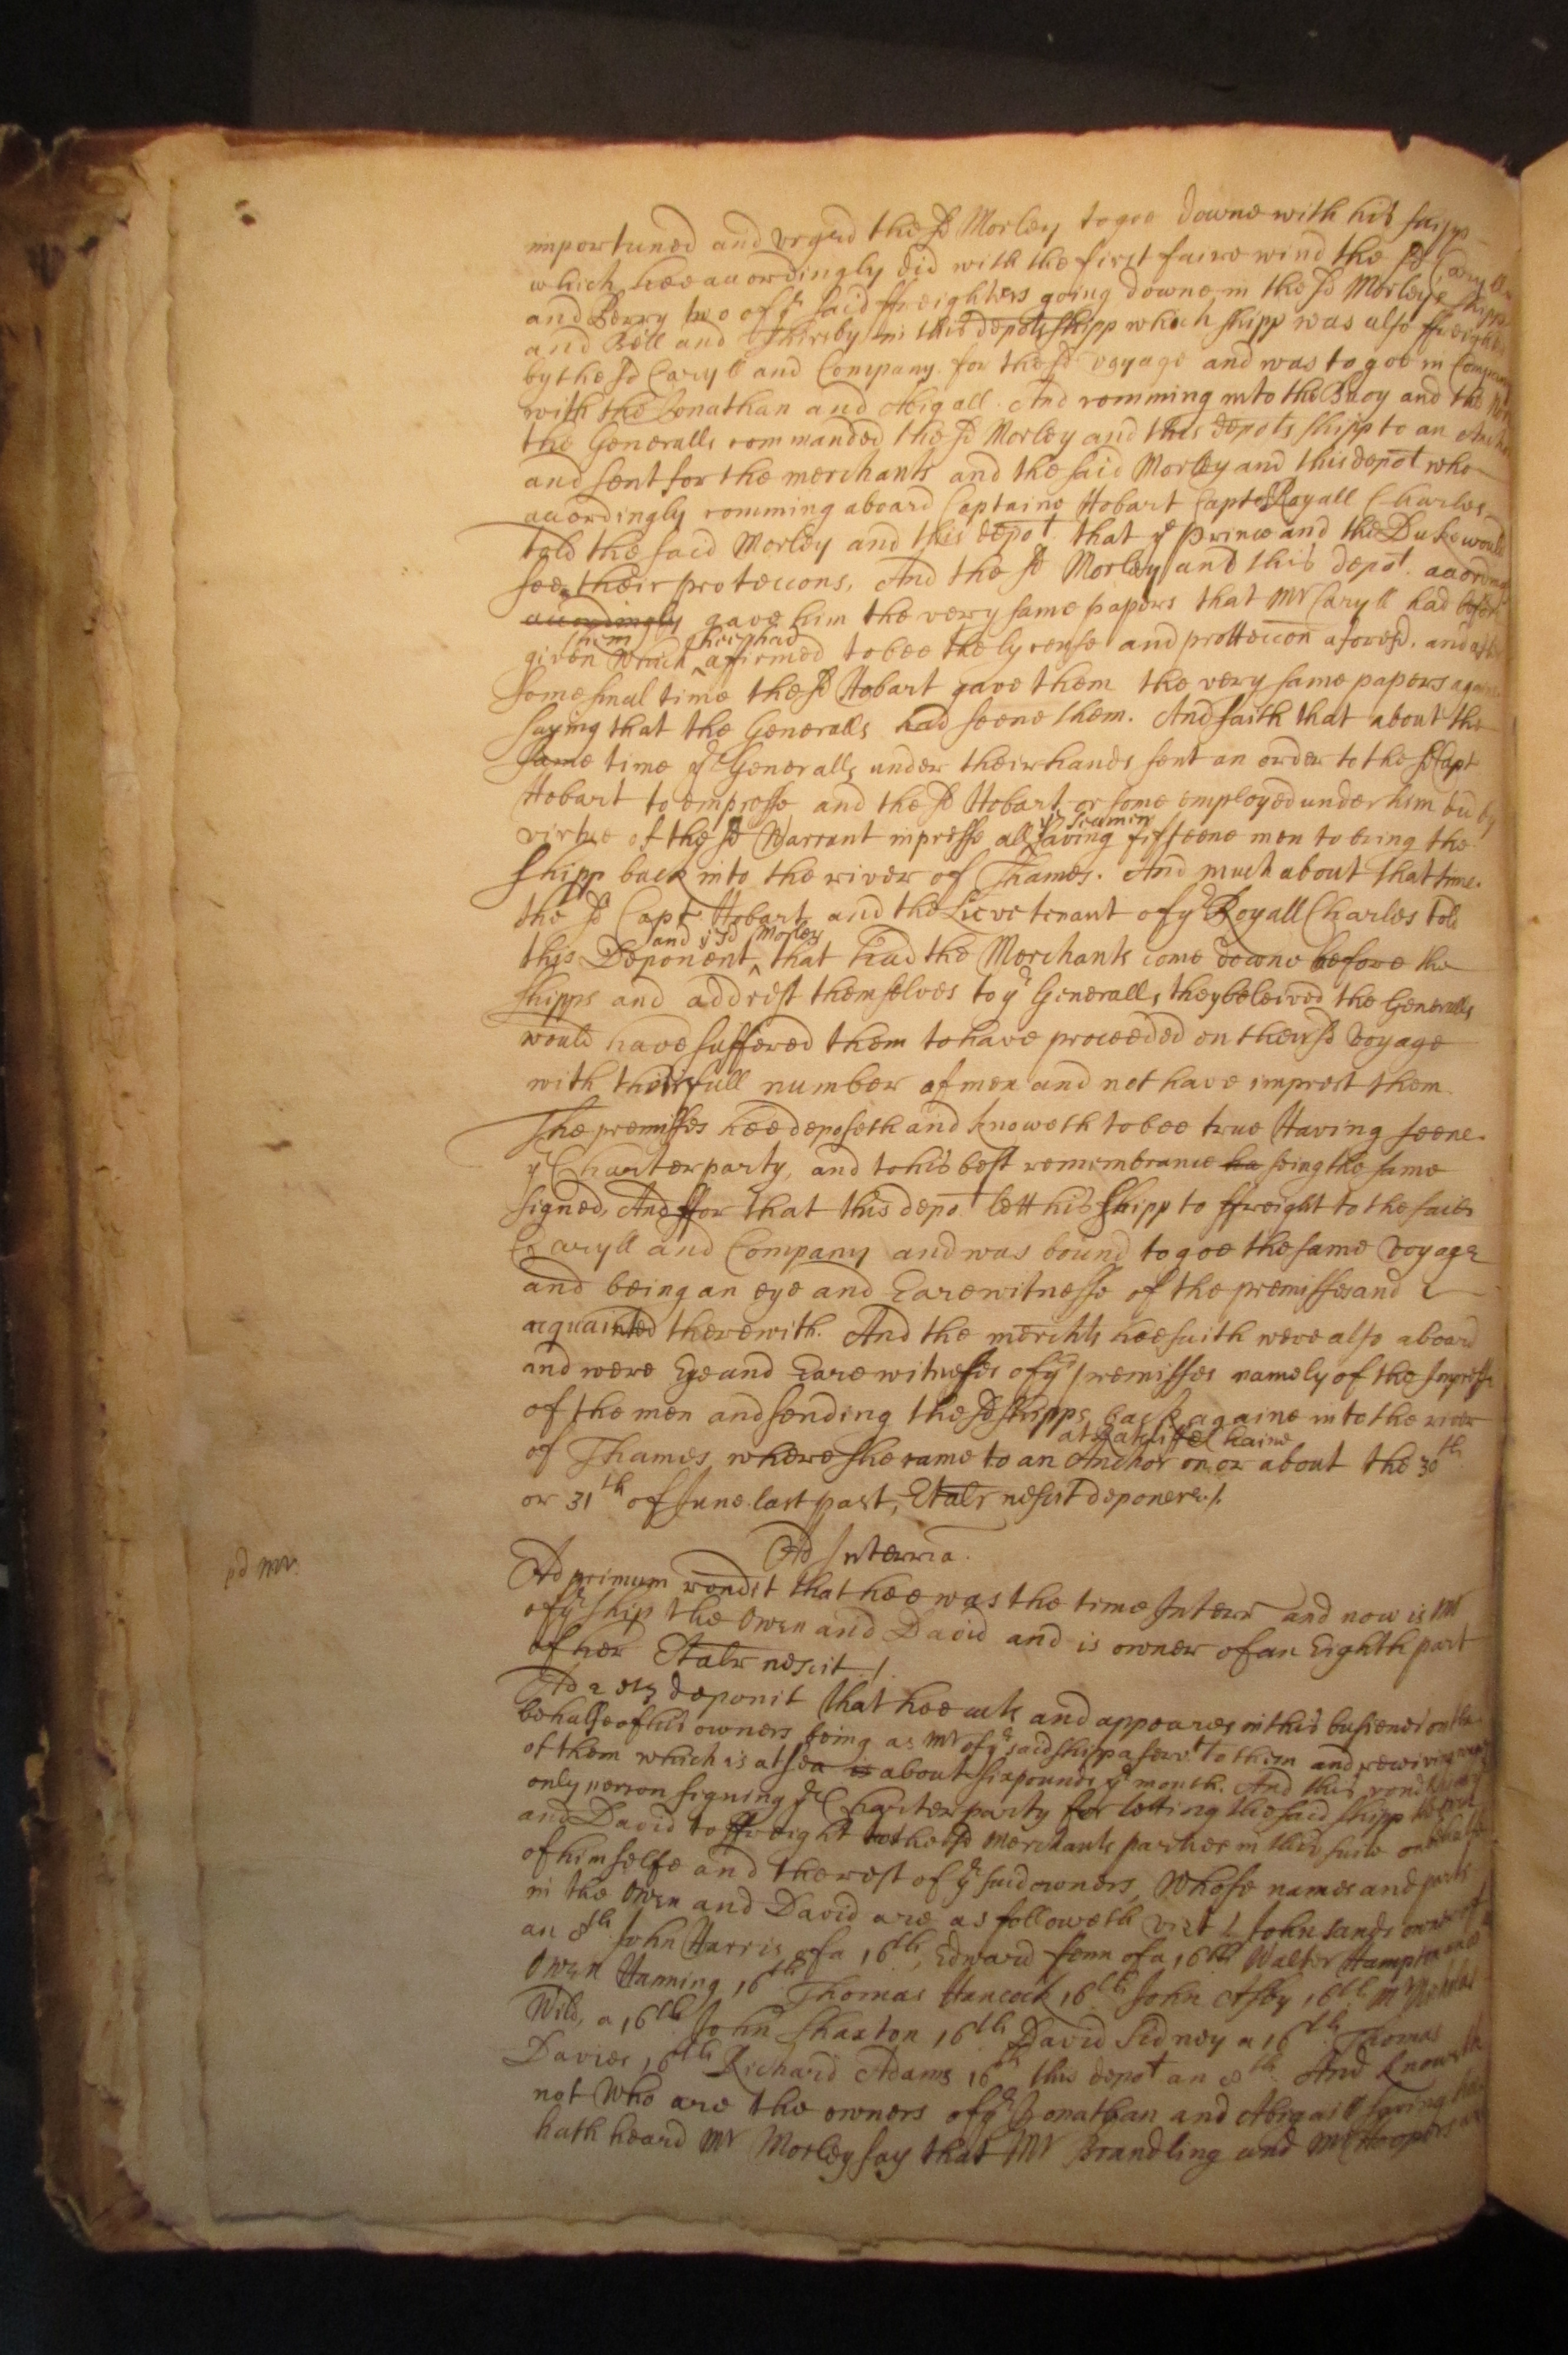 importuned and urged the sd Morley to goe downe with his shipp
which hee accordingly did with the first faire wind the sd Caryll
and Berry two of ye said ffreighters going downe in the sd Morleys shipp
and Bell and Thursby in this depots shipp which shipp was also ffreighted
by the sd Caryll and Company for the sd voyage and was to goe in Company
with the Jonathan and Abigall. And comming into the Buoy and the
the Generalls commanded the sd Morley and this depots shipp to an
and sent for the merchants and the said Morley and this depot who
accordingly comming aboard Captaine Hobart Capt Royall Charles
told the said Morley and this depot. that ye Prince and the Duke would
see their proteccons, And the sd Morley and this depot. accordingly
accordingly gave him the very same papers that Mr Caryll had before
given them which hee had afirmed to bee the lycense and prottecon aforesd. and after
some smal time the sd Hobart gave them the very same papers againe
saying that the Generalls had seene them. And saith that about the
same time ye Generalls under their hands sent an order to the sd Capt
Hobart to empresse and the sd Hobart or some employed under him did by
virtue of the sd Warrant impresse all ye seamen saving fifteene men to bring the
shipp back into the river of Thames. And much about that time
the sd Capt Hobart and the Lievetenant of ye Royall Charles told
this Deponent and ye sd Morley that had the Merchants come downe before the
shipps and addrest themselves to ye Generalls they beleived the Generalls
would have suffered them to have proceeded on their sd voyage
with their full number of men and not have imprest them
The premisses hee deposeth and knoweth to bee true Having seene
ye Charterparty, and to his best remembrance ha seing the same
signed, And ffor that this depot lett his shipp to ffreight to the said
Caryll and Company and was bound to goe the same voyage
and being an eye and Eare witnesse of the premisses and
acquainted therewith. And the merchts hee saith were also aboard
and were Eye and Eare witnesses of ye premisses namely of the Impresse
of the men and sending the sd shipps back againe into the river
of Thames where she came to an Anchor at Ratcliffe Chaine on or about the 30th
or 31th of June last past, Et alr nescit deponere./.
Ad Interria.
pd mr.
Ad primum rondet that hee was the time Interr and now is Mr
of ye ship the Owen and David and is owner of an Eighth part
of her Et alr nescit./.
Ad 2 deponit that hee acts and appeares in this busienes on the
behalfe of his owners being as Mr of ye said shipp a servt to them and receiving wages
of them which is at sea is about six pounds ye month. And this rondt being
only person signing ye Charter party for letting the said shipp the Owen
and David to ffreight to the sd Merchants parties in this suite on behalfe
of himselfe and the rest of ye said owners, Whose names and parts
in the Owen and David are as followeth vizt John Sands owner of
an 8th John Harris of a 16th, Edward Fenn of a 16th Walter Hampton
Owen Hanning 16th Thomas Hancock 16th John Asby 16th Mr
Wild, a 16th John Shaxton 16th David Sidney a 16th Thomas
Davies 16th Richard Adams 16th this depot an 8th And knoweth
not who are the owners of ye Jonathan and Abigaill saving hee
hath heard Mr Morley say that Mr Brandling and Mr Hooper